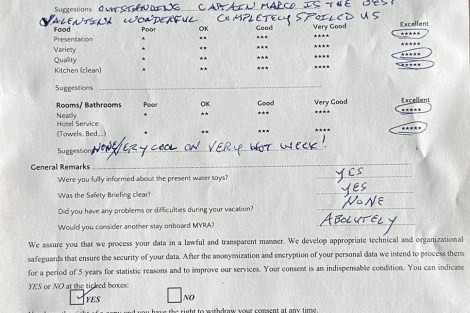 Suggestions OUTSTANDING CAPTAIN MARCO IS THE BEST
VALENTENA WONDERFUL COMPLETELY SPOILED US
Food Poor OK Good Very Good Excellent
Presentation * ** *** **** *****
Variety * ** *** **** *****
Quality * ** *** **** *****
Kitchen (clean) * ** *** **** *****
Suggestions
Rooms/ Bathrooms Poor OK Good Very Good Excellent
Neatly * ** *** **** *****
Hotel Service
(Towels, Bed...) * ** *** **** *****
Suggestions NONE/VERY COOL ON VERY HOT WEEK!
General Remarks
Were you fully informed about the present water toys? YES
Was the Safety Briefing clear? YES
Did you have any problems or difficulties during your vacation? NONE
Would you consider another stay onboard MYRA? ABOLUTELY
We assure you that we process your data in a lawful and transparent manner. We develop appropriate technical and organizational
safeguards that ensure the security of your data. After the anonymization and encryption of your personal data we intend to process them
for a period of 5 years for statistic reasons and to improve our services. Your consent is an indispensable condition. You can indicate
YES or NO at the ticked boxes:
YES NO
the right to withdraw your consent at any time.